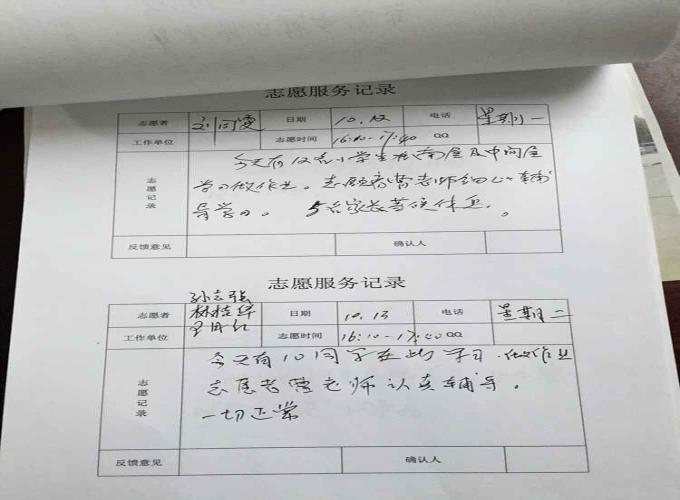 志愿服务记录
志愿者 刘同爱 日期 10.12 电话 星期一
工作单位 志愿时间 16:10-17:40 QQ
志愿记录
今天有12名小学生在南屋及中间屋
学习做作业。志愿者曹老师细心辅
导学习。 5名家长等侯休息。
反馈意见 确认人
志愿服务记录
孙志强
志愿者 林桂华 日期 10.13 电话 星期二
工作单位 志愿时间 16:10-17:40 QQ
志愿记录
今天有10同学在此学习.做作业
志愿者 老师认真辅导。
一切正常
反馈意见 确认人